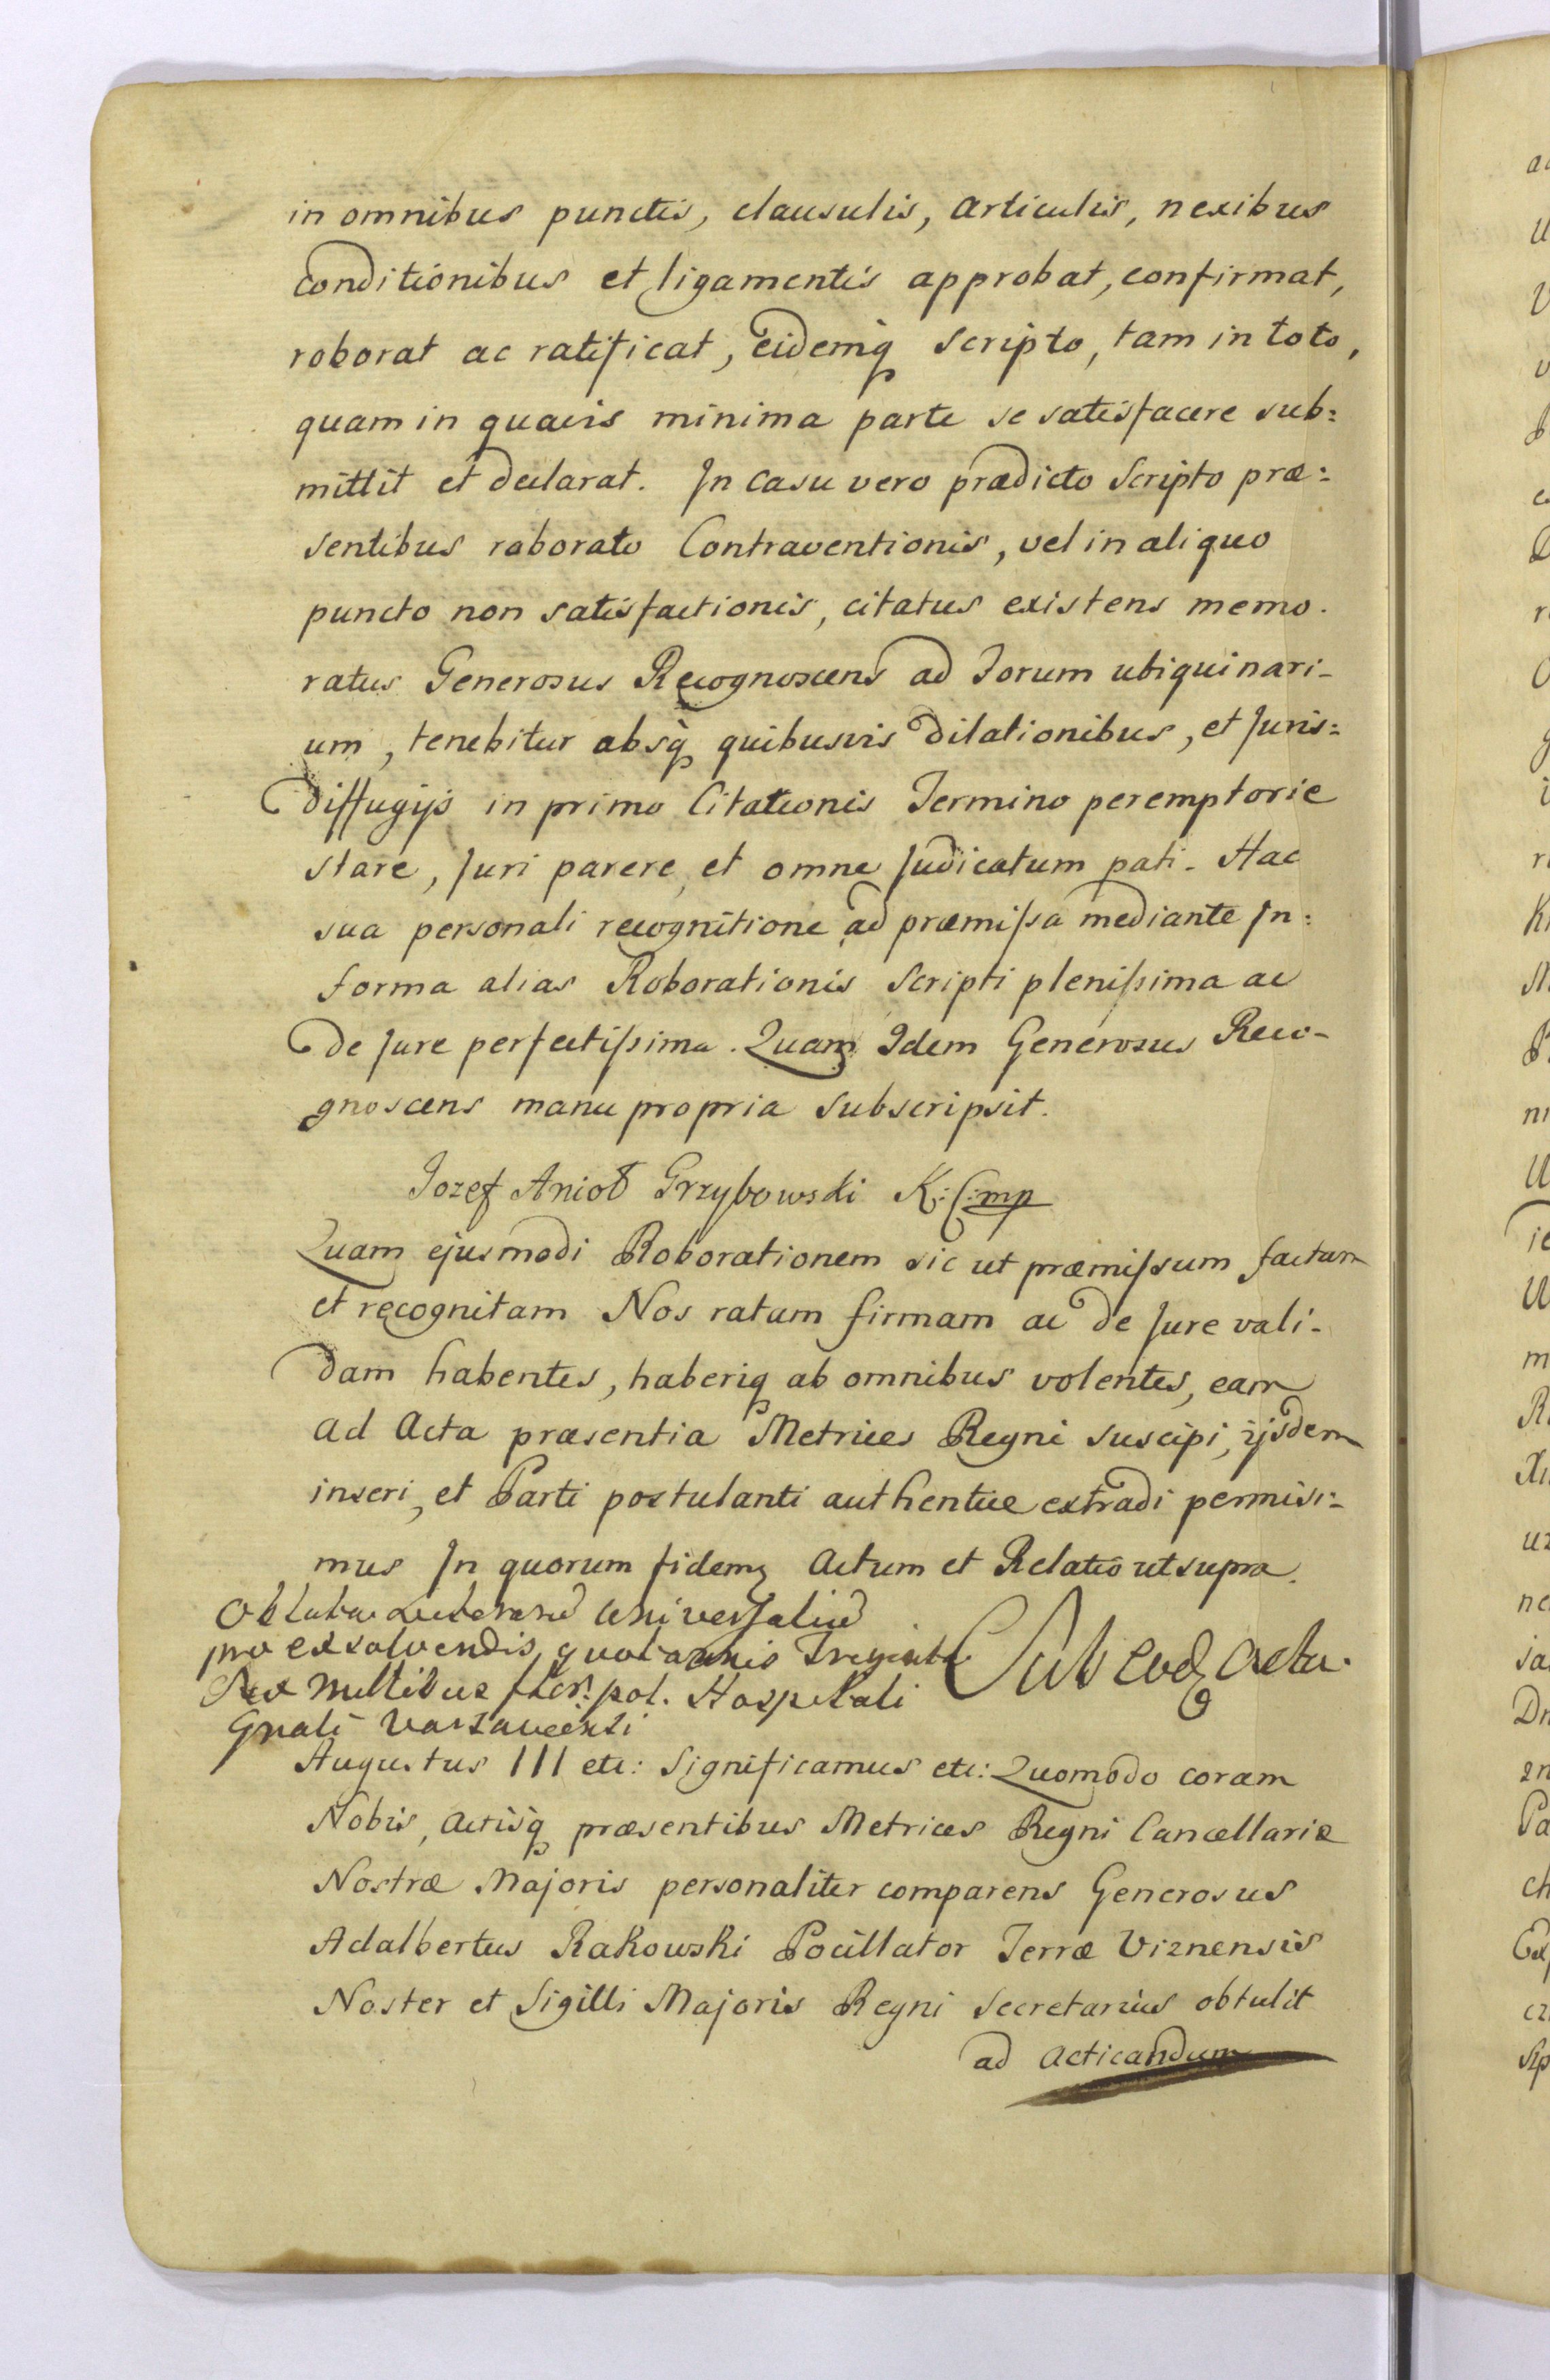 in omnibus punctis, clausulis, articulis, nexibus
conditionibus et ligamentis approbat, confirmat,
roborat ac ratificat, eidemq scripto, tam in toto,
quam in quavis minima parte se satisfacere sub:
mittit et declarat. In casu vero prædicto Scripto præ:
sentibus roborato Contraventionis, vel in aliquo
puncto non satisfactionis, citatus existens memo.
ratus Generosus Recognoscens ad Forum ubiquinari-
um, tenebitur absq quibusvis dilationibus, et Juris:
diffugijs in primo Citationis Termino peremptorie
stare, Juri parere, et omne Judicatum pati. Hac
sua personali recognitione ad præmissa mediante In:
forma alias Roborationis Scripti plenissima ac
de Jure perfectissima. Quam Idem Generosus Reco-
gnoscens manu propria subscripsit.
Jozef Anioł Grzybowski K: C: mp
Quam ejusmodi Roborationem sic ut præmissum factam
et recognitam Nos ratam firmam ac de Jure vali-
dam habentes, haberiq ab omnibus volentes, eam
ad Acta præsentia Metrices Regni suscipi, ijsdem
inseri, et Parti postulanti authentice extradi permisi:
mus In quorum fidem Actum et Relatio ut supra.
Oblata Universaliu
pro exsolvendis quotannis Triginta
Sex Millibus flor: pol. Hospitali
Gnali Varsaviensi
Sub eod Actu.
Augustus III etc: Significamus etc: Quomodo coram
Nobis, Actisq præsentibus Metrices Regni Cancellariæ
Nostræ Majoris personaliter comparens Generosus
Adalbertus Rakowski Pocillator Terræ Viznensis
Noster et Sigilli Majoris Regni Secretarius obtulit
ad acticandum